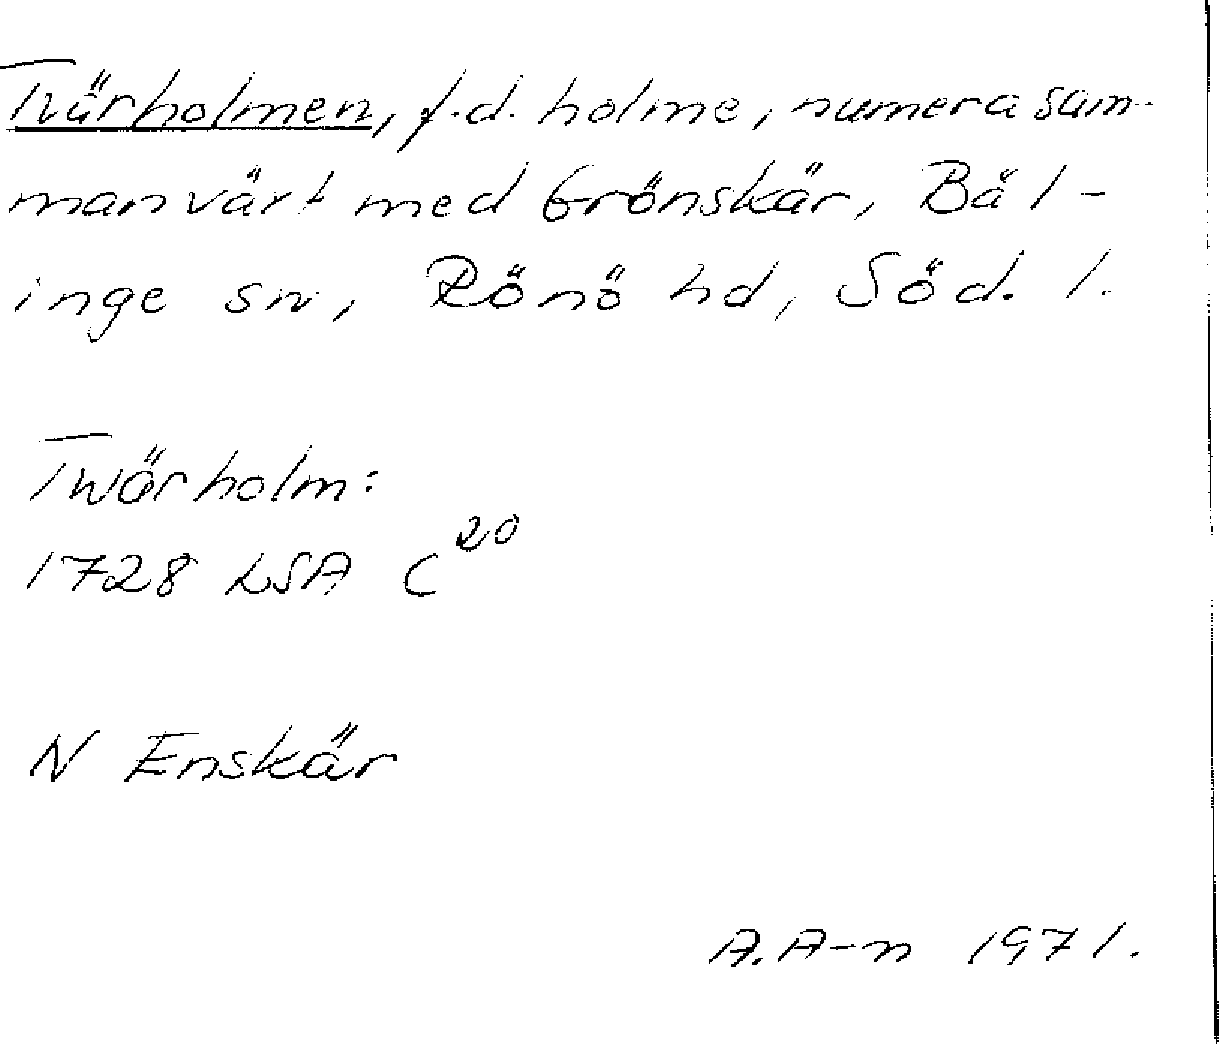 Tvärholmen, f.d. holme, numera sam-
manväxt med Grönskär, Bäl-
inge sn, Rönö hd, Söd. l.
Twärholm:
1728 LSA C²⁰
N Enskär
A.A-n 1971.